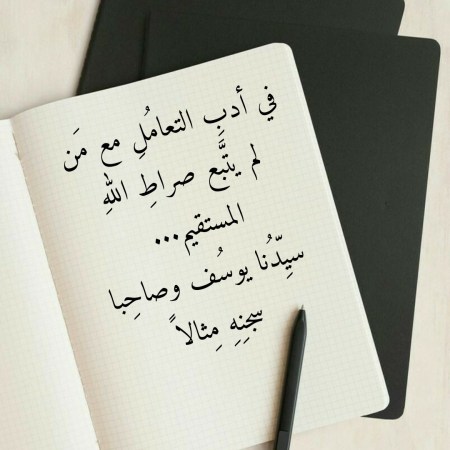 في أدبِ التعامُلِ مع مَن
لم يتبَّع صراطِ اللهِ
المستقيم...
سيِّدُنا يوسُف وصاحِبا
سجنِهِ مِثالاً